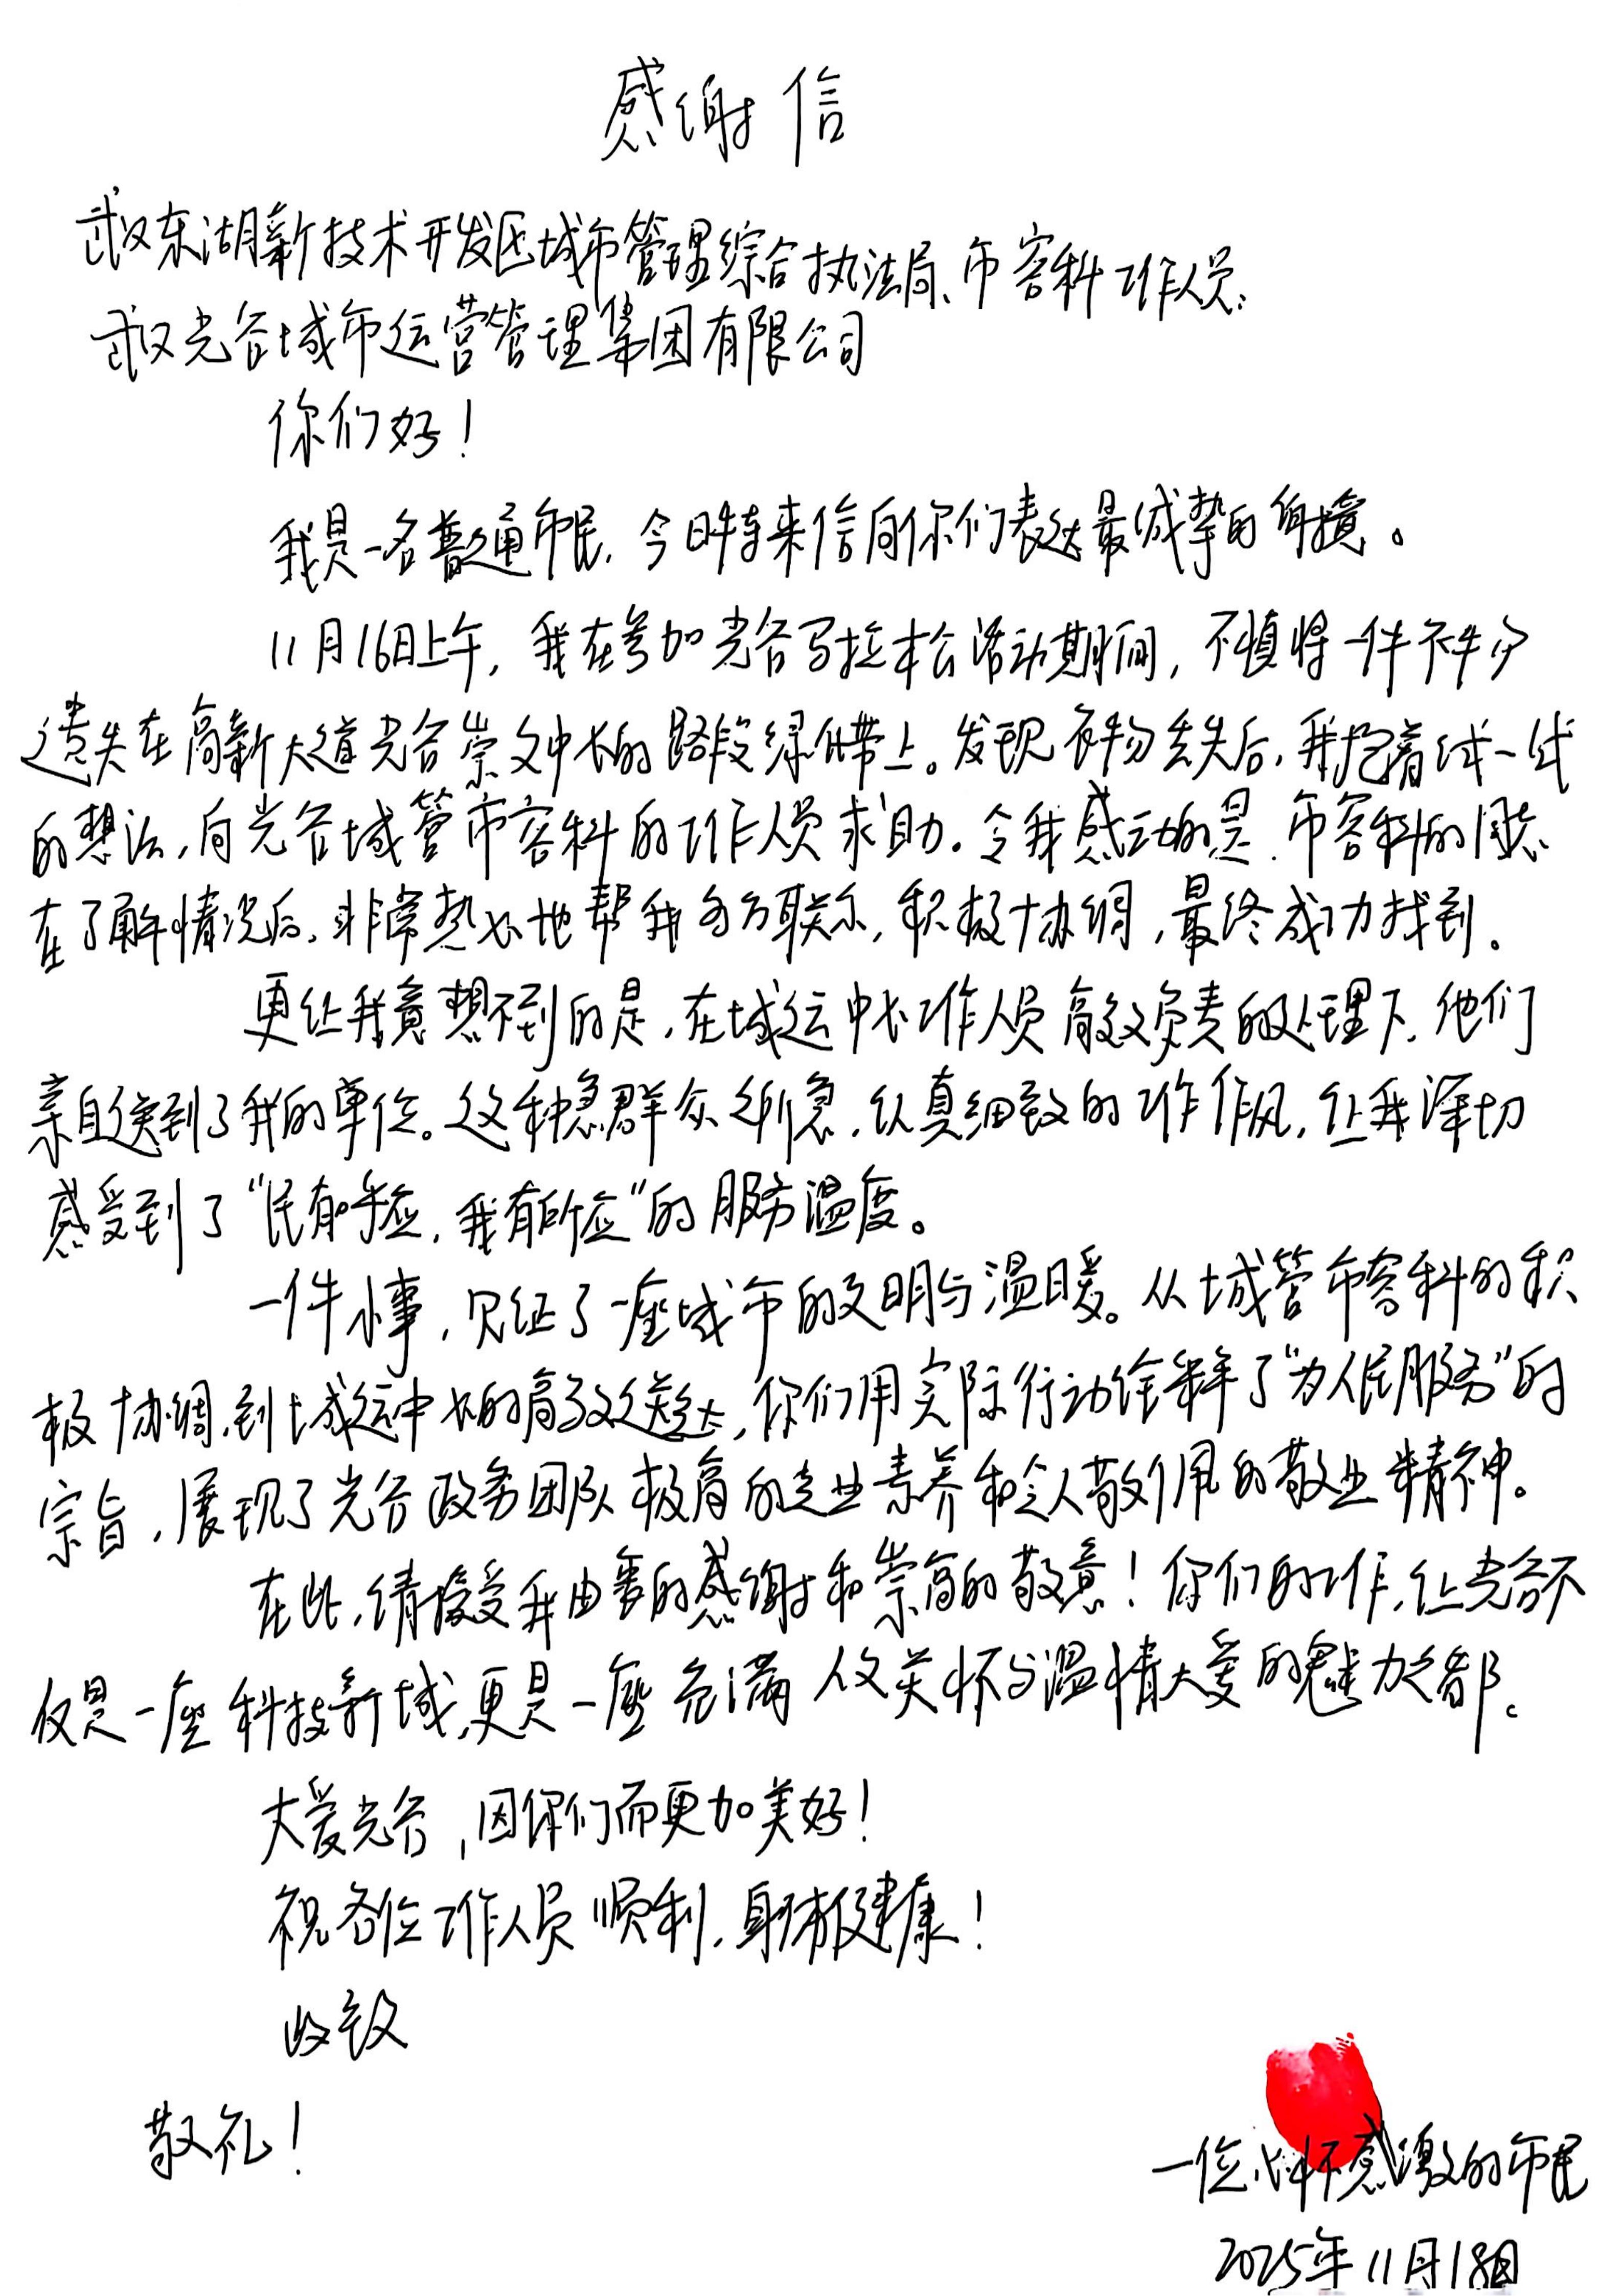 感谢信
武汉东湖新技术开发区城市管理综合执法局、市容科工作人员:
武汉光谷城市运营管理集团有限公司
你们好!
我是一名普通市民,今日特来信向你们表达最诚挚的。
11月16日上午,我在参加光谷马拉松活动期间,不慎将一件
遗失在高新大道光谷崇文中心的路段绿化带上。发现衣物丢失后,我抱着试一试
的想法,向光谷城管市容科的工作人员求助。令我感动的是,市容科的同志
在了解情况后,非常热心地帮我多方联系,积极协调,最终成功找到。
更让我意想不到的是,在城运中心工作人员高效负责的处理下,他们
亲自送到了我的单位。这种急群众之所急,认真细致的工作作风,让我深切
感受到了“民有呼应,我有所应”的服务温度。
一件小事,见证了一座城市的文明与温暖。从城管市容科的积
极协调,到城运中心的高效送达,你们用实际行动诠释了“为人民服务”的
宗旨,展现了光谷政务团队极高的专业素养和令人敬佩的敬业精神。
在此,请接受我由衷的感谢和崇高的敬意!你们的工作,让光谷不
仅是一座科技新城,更是一座充满人文关怀与温情大爱的魅力之都。
大爱光谷,因你们而更加美好!
祝各位工作人员顺利,身体健康!
此致
敬礼!
一位心怀感激的市民
2025年11月18日